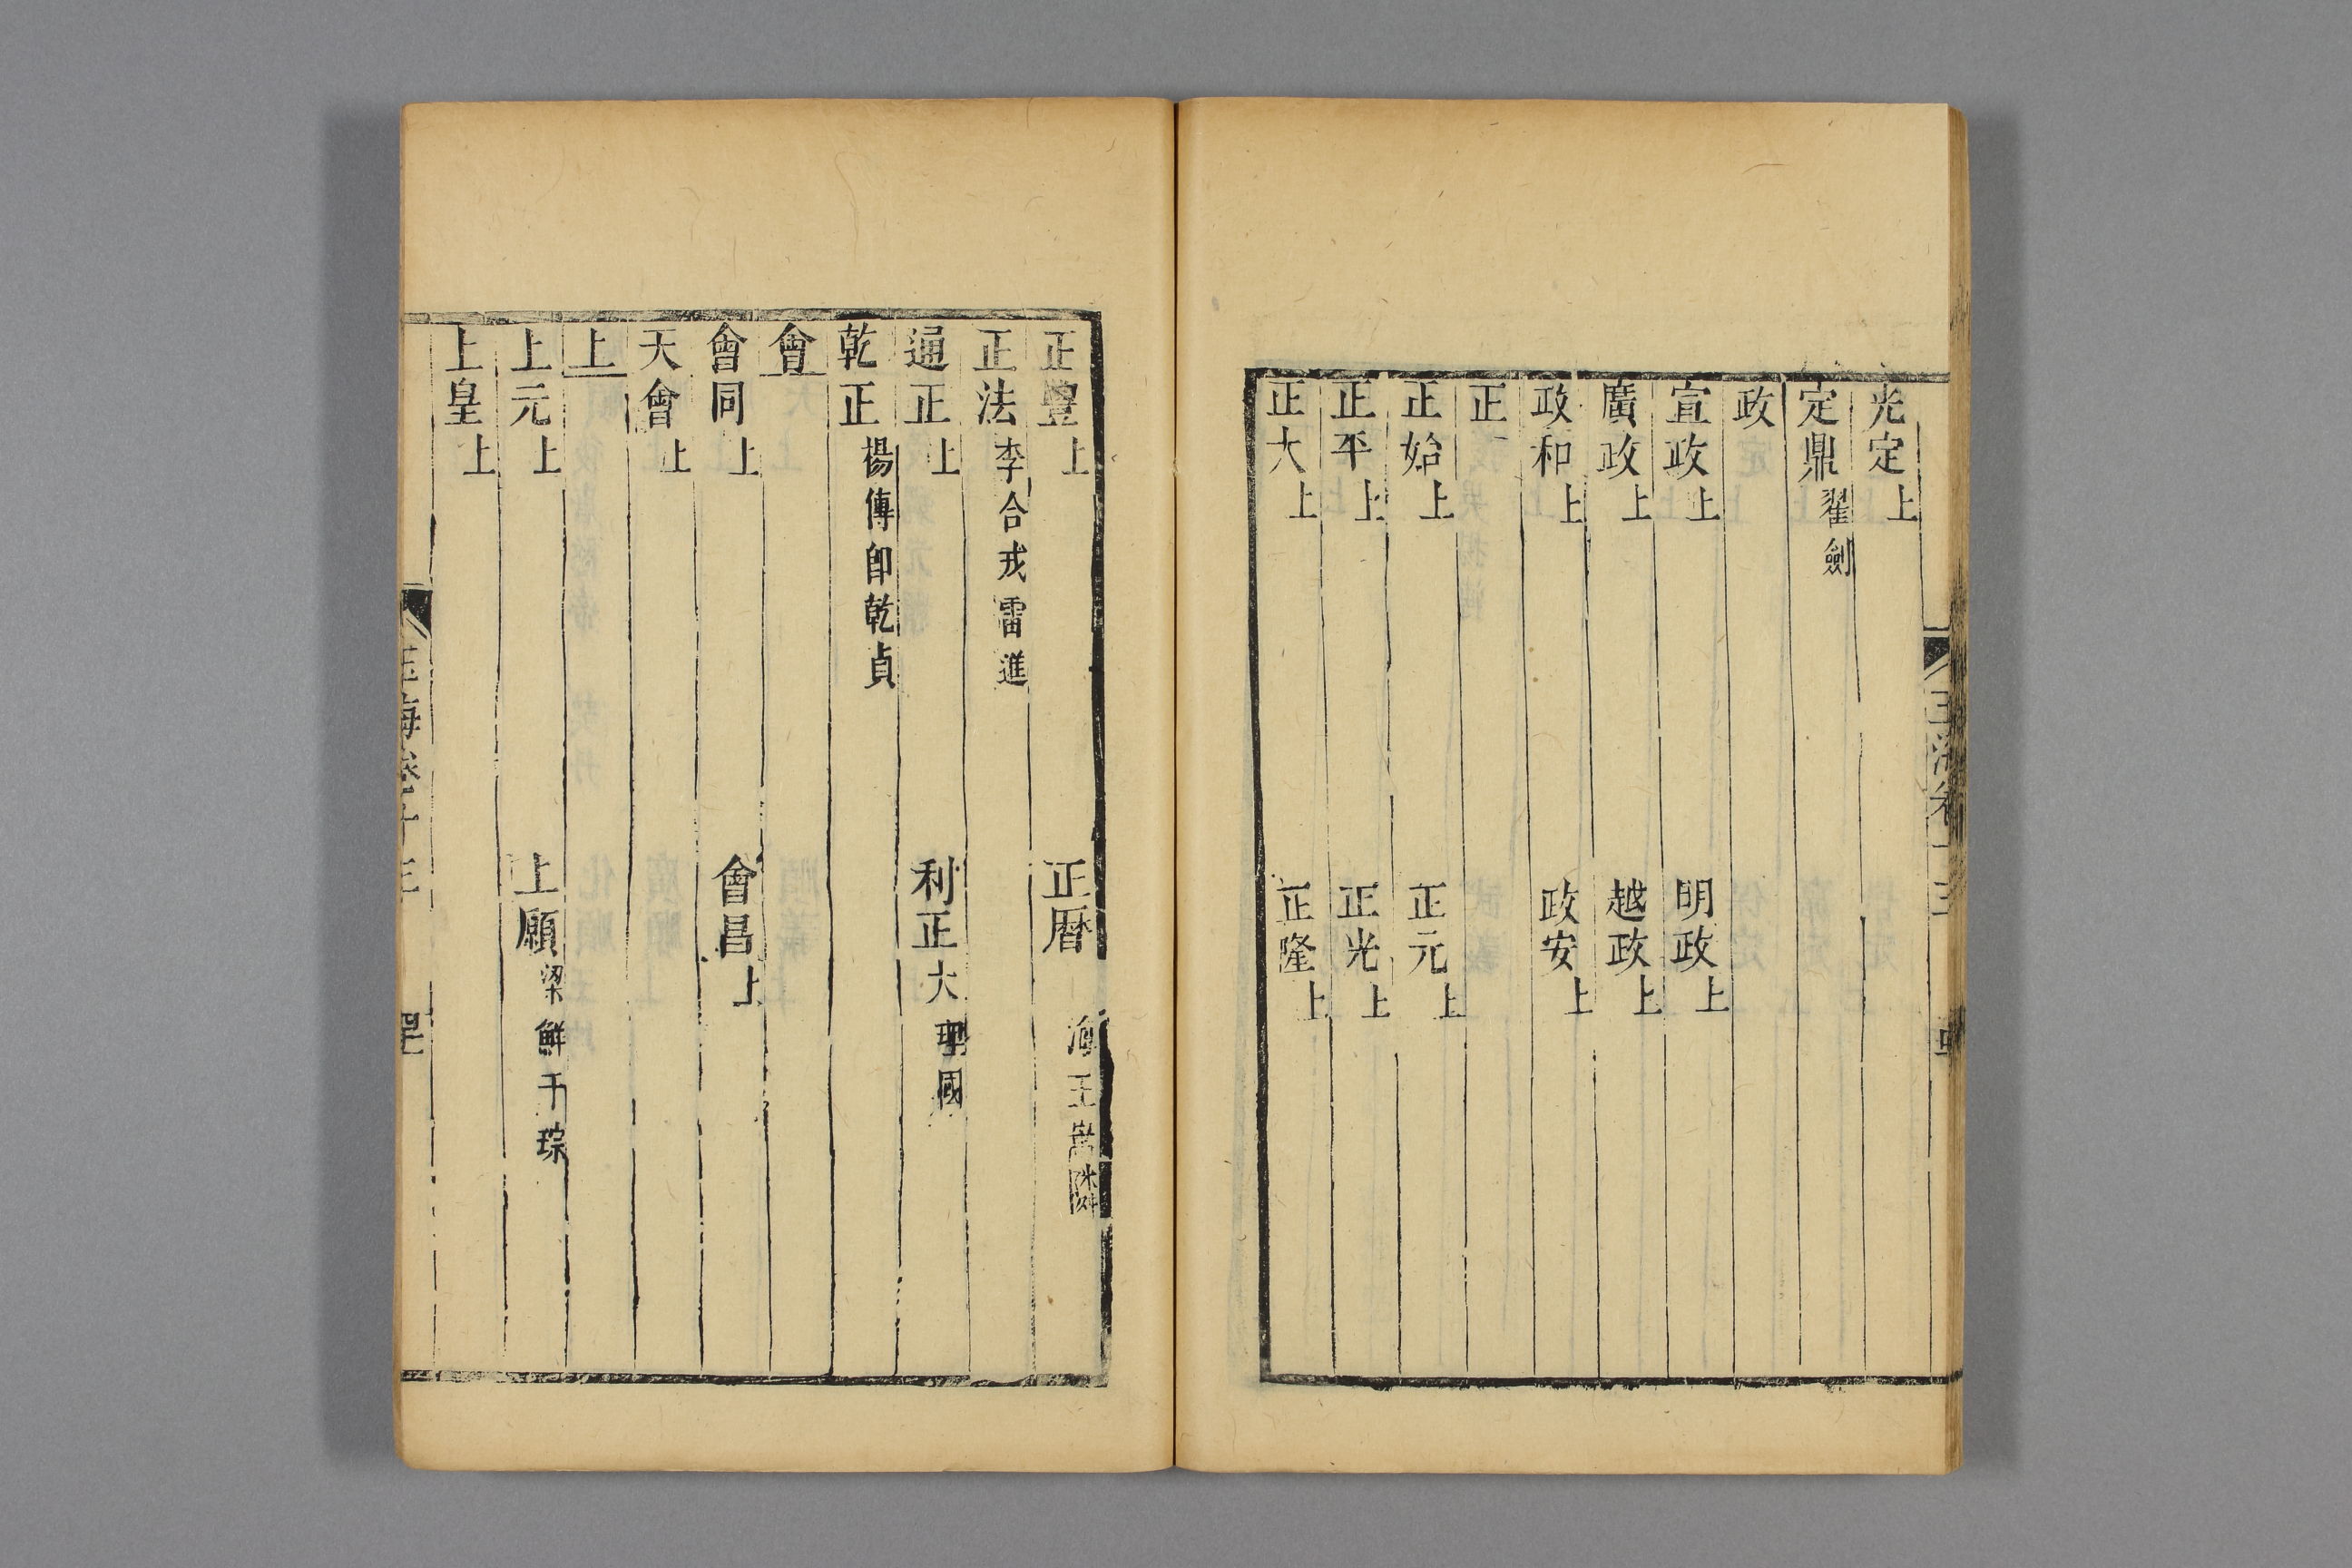 光定上
定鼎翟劍
政
宣政上 明政上
廣政上 越政上
政和上 政安上
正
正始上 正元上
正平上 正光上
正大上 正隆上
正豐上 正曆 海王嵩隣
正法李合戎雷進
通正上 利正大理國
乾正楊傳即乾貞
會
會同上 會昌上
天會上
上
上元上 上願梁鮮于琮
上皇上
玉海卷十三